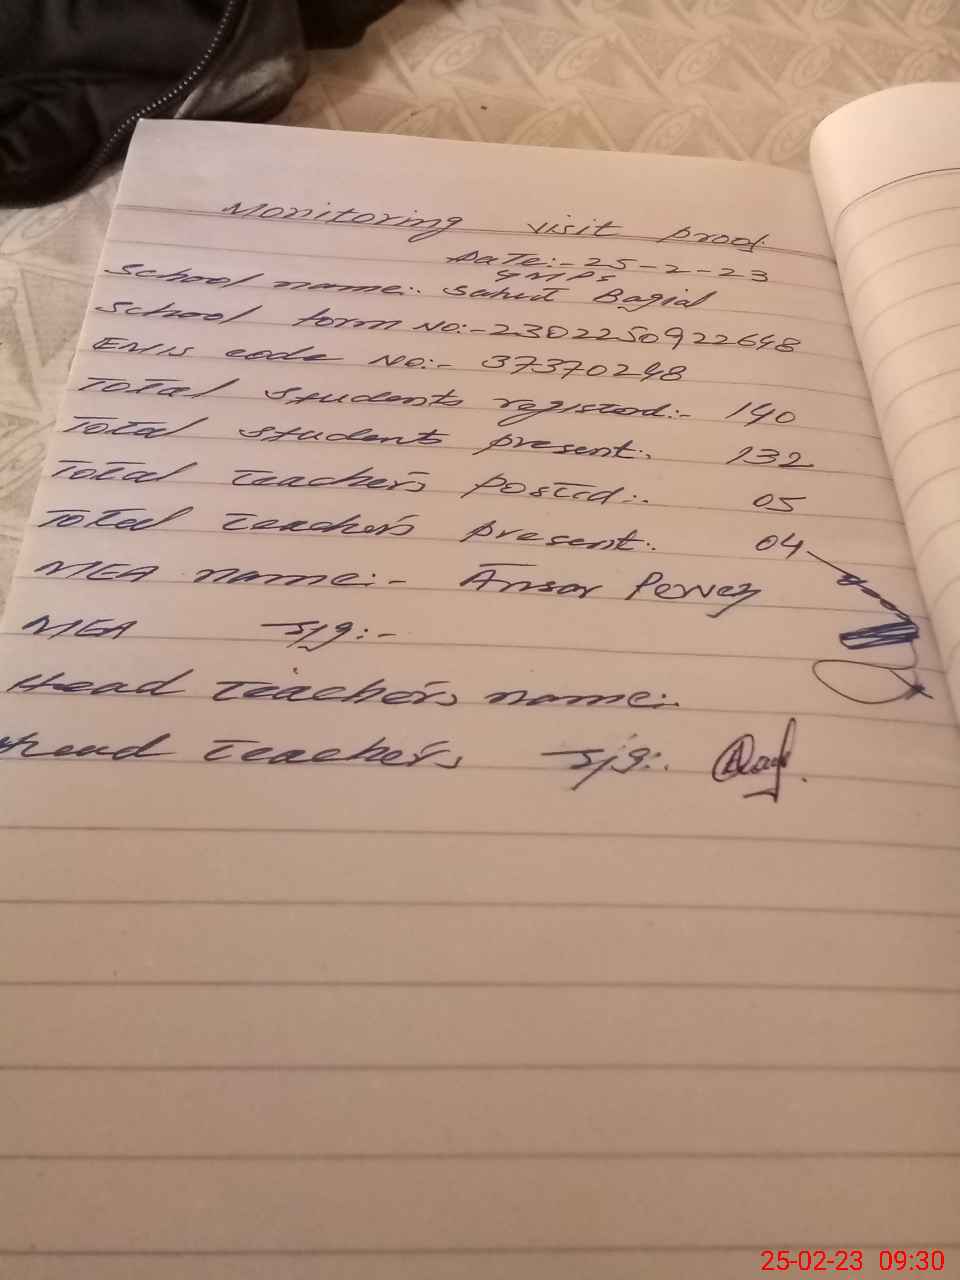 Monitoring visit proof
Date:- 25-2-23
GMPS
School name:. Sahut Bagial
School form No:- 2302250922648
EMIS code No:- 37370248
Total students registed:- 140
Total students present:. 132
Total teachers postd:. 05
Total teachers present:. 04
MEA name:- Ansar Pervez
MEA Sig:-
Head teachers name:.
Head teachers Sig:.
25-02-23 09:30